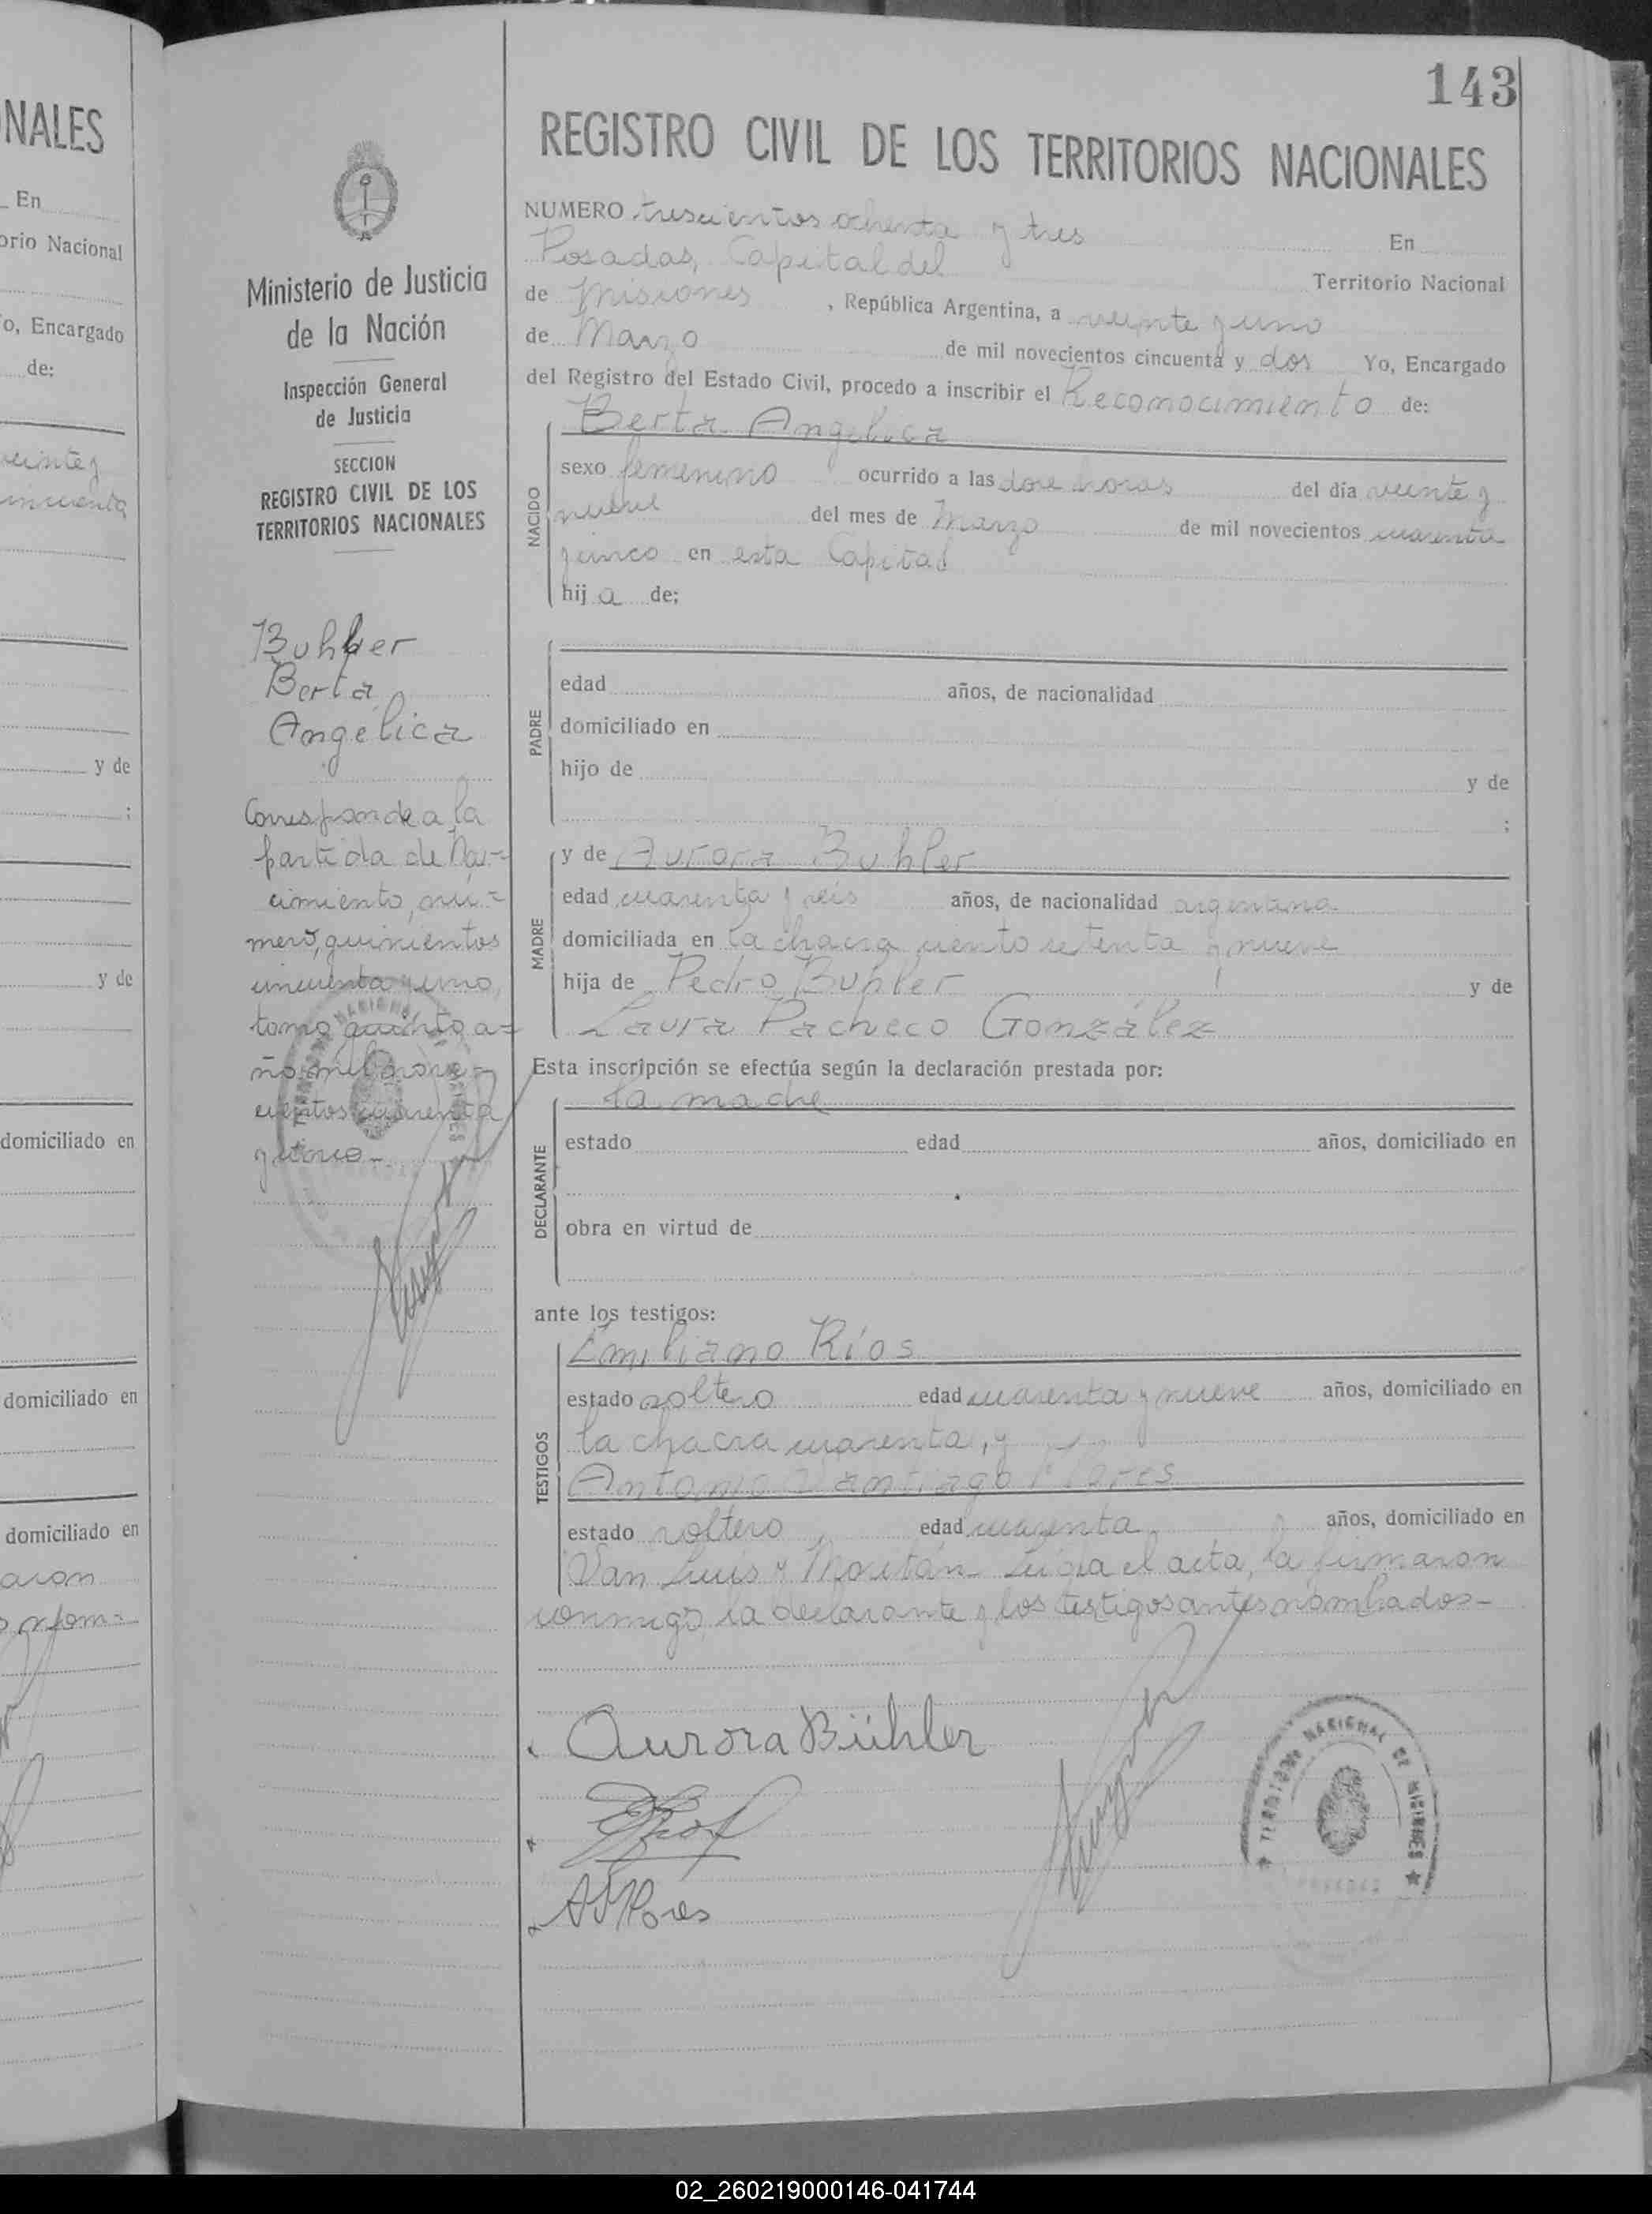 NALES
En
orio Nacional
o, Encargado
de:
veinte y
cincuenta
y de
;
y de
domiciliado en
domiciliado en
domiciliado en
aron
Ministerio de Justicia
de la Nación
Inspección General
de Justicia
SECCION
REGISTRO CIVIL DE LOS
TERRITORIOS NACIONALES
Buhler
Berta
Angélica
Corresponde a la
partida de Na-
cimiento, nú-
mero, quinientos
cincuenta y uno,
tomo quinto a-
ño mil nove-
cientos cuarenta
y cinco-
143
REGISTRO CIVIL DE LOS TERRITORIOS NACIONALES
NUMERO trescientos ochenta y tres En
Posadas, Capital del Territorio Nacional
de Misiones, República Argentina, a veinte y uno
de Marzo de mil novecientos cincuenta y dos Yo, Encargado
del Registro del Estado Civil, procedo a inscribir el Reconocimiento de:
Berta Angélica
NACIDO
sexo femenino ocurrido a las doce horas del día veinte y
nueve del mes de Marzo de mil novecientos cuarenta
y cinco en esta Capital
hij a de;
PADRE
edad años, de nacionalidad
domiciliado en
hijo de y de
;
MADRE
y de Aurora Buhler
edad cuarenta y seis años, de nacionalidad argentina
domiciliada en la chacra ciento setenta y nueve
hija de Pedro Buhler y de
Laura Pacheco González
Esta inscripción se efectúa según la declaración prestada por:
la madre
DECLARANTE
estado edad años, domiciliado en
obra en virtud de
ante los testigos:
TESTIGOS
Emiliano Ríos
estado soltero edad cuarenta y nueve años, domiciliado en
la chacra cuarenta, y
Antonio Santiago Flores
estado soltero, edad cuarenta, años, domiciliado en
San Luis y Moritán- Leída el acta, la firmaron
conmigo, la declarante y los testigos antes nombrados-
Aurora Bühler
ASFlores
TERRITORIO NACIONAL DE MISIONES
02_260219000146-041744